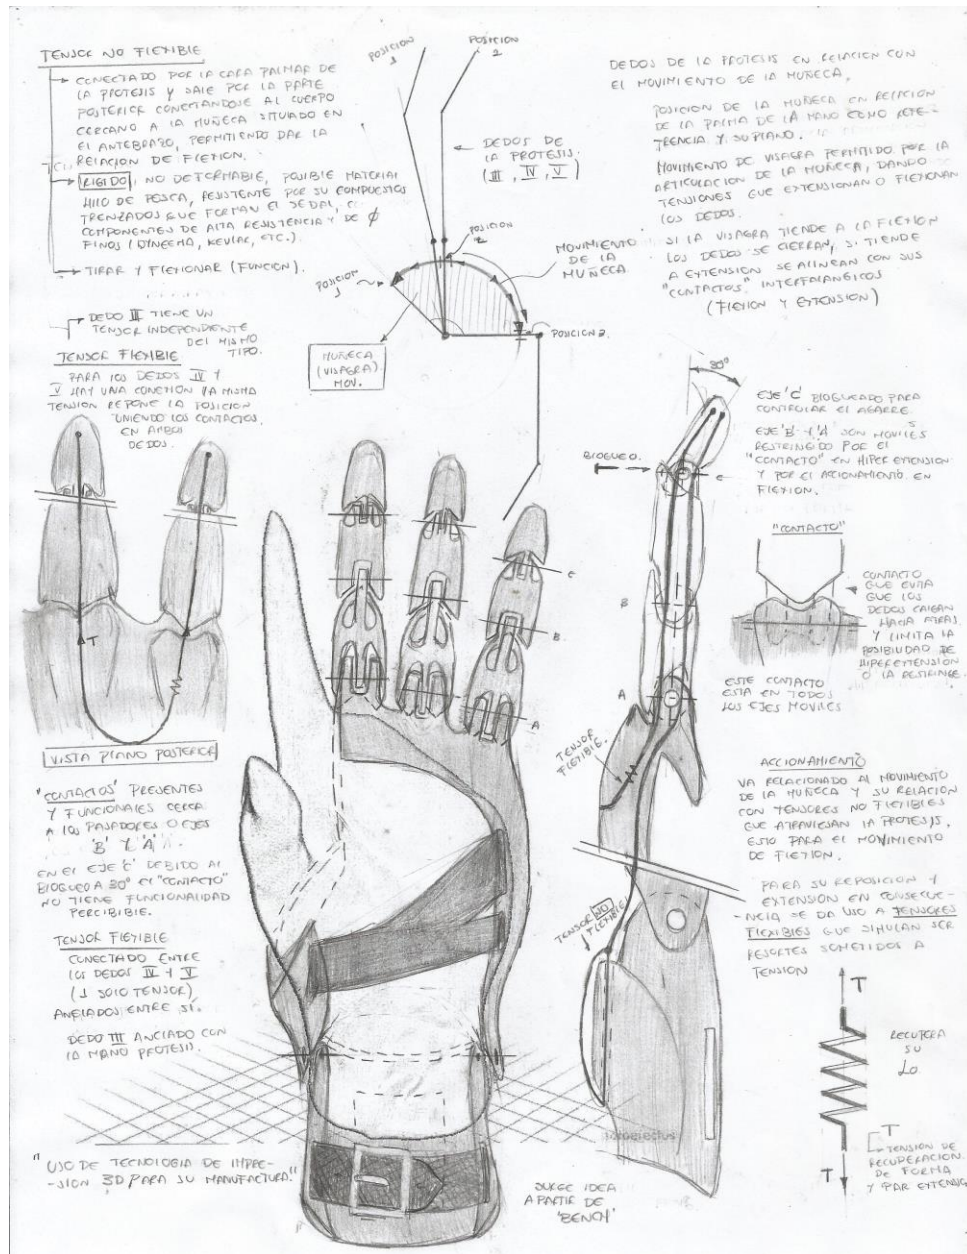 TENSOR NO FLEXIBLE
CONECTADO POR LA CARA PALMAR DE
LA PROTESIS Y SALE POR LA PARTE
POSTERIOR CONECTANDOSE AL CUERPO
CERCANO A LA MUÑECA SITUADO EN
EL ANTEBRAZO, PERMITIENDO DAR LA
RELACION DE FLEXION.
RIGIDO, NO DEFORMABLE, POSIBLE MATERIAL
HILO DE PESCA, RESISTENTE POR SU COMPUESTOS
TRENZADOS QUE FORMAN EL SEDAL,
COMPONENTES DE ALTA RESISTENCIA Y DE Ø
FINOS (DYNEEMA, KEVLAR, ETC.).
TIRAR Y FLEXIONAR (FUNCION).
DEDO III TIENE UN
TENSOR INDEPENDIENTE
DEL MISMO
TIPO.
TENSOR FLEXIBLE
PARA LOS DEDOS IV Y
V HAY UNA CONEXION LA MISMA
TENSION REPONE LA POSICION
UNIENDO LOS CONTACTOS
EN AMBOS
DEDOS.
T
VISTA PLANO POSTERIOR
"CONTACTOS" PRESENTES
Y FUNCIONALES CERCA
A LOS PASADORES O EJES
'B' Y 'A'.
EN EL EJE 'C' DEBIDO AL
BLOQUEO A 30° EL "CONTACTO"
NO TIENE FUNCIONALIDAD
PERCIBIBLE.
TENSOR FLEXIBLE
CONECTADO ENTRE
LOS DEDOS IV Y V
(1 SOLO TENSOR)
ANCLADOS ENTRE SÍ.
DEDO III ANCLADO CON
LA MANO PROTESIS.
"USO DE TECNOLOGIA DE IMPRE-
-SION 3D PARA SU MANUFACTURA."
POSICION
1
POSICION
2
DEDOS DE
LA PROTESIS.
(III, IV, V)
POSICION
1
POSICION
2
MOVIMIENTO
DE LA
MUÑECA.
POSICION 2.
MUÑECA
(VISAGRA)
MOV.
C
B
A
SURGE IDEA
A PARTIR DE
'BENCH'
DEDOS DE LA PROTESIS EN RELACION CON
EL MOVIMIENTO DE LA MUÑECA,
POSICION DE LA MUÑECA EN RELACION
DE LA PALMA DE LA MANO COMO REFE-
TRENCIA Y SU PLANO.
MOVIMIENTO DE VISAGRA PERMITIDO POR LA
ARTICULACION DE LA MUÑECA, DANDO
TENSIONES QUE EXTENSIONAN O FLEXIONAN
LOS DEDOS.
SI LA VISAGRA TIENDE A LA FLEXION
LOS DEDOS SE CIERRAN, SI TIENDE
A EXTENSION SE ALINEAN CON SUS
"CONTACTOS" INTERFALANGICOS
(FLEXION Y EXTENSION)
30°
BLOQUEO.
C
B
A
EJE 'C' BLOQUEADO PARA
CONTROLAR EL AGARRE.
EJE 'B' Y 'A' SON MOVILES
RESTRINGIDO POR EL
"CONTACTO" EN HIPER EXTENSION
Y POR EL ACCIONAMIENTO EN
FLEXION.
"CONTACTO"
CONTACTO
QUE EVITA
QUE LOS
DEDOS CAIGAN
HACIA ATRAS
Y LIMITA LA
POSIBILIDAD DE
HIPEREXTENSION
O LA RESTRINGE.
ESTE CONTACTO
ESTA EN TODOS
LOS EJES MOVILES
TENSOR
FLEXIBLE.
TENSOR NO
FLEXIBLE
ACCIONAMIENTO
VA RELACIONADO AL MOVIMIENTO
DE LA MUÑECA Y SU RELACION
CON TENSORES NO FLEXIBLES
QUE ATRAVIESAN LA PROTESIS.
ESTO PARA EL MOVIMIENTO
DE FLEXION.
PARA SU REPOSICION Y
EXTENSION EN CONSECUE-
-NCIA SE DA USO A TENSORES
FLEXIBLES QUE SIMULAN SER
RESORTES SOMETIDOS A
TENSION
T
RECUPERA
SU
Lo
T
TENSION DE
RECUPERACION
DE FORMA
Y PAR EXTENSIO
T